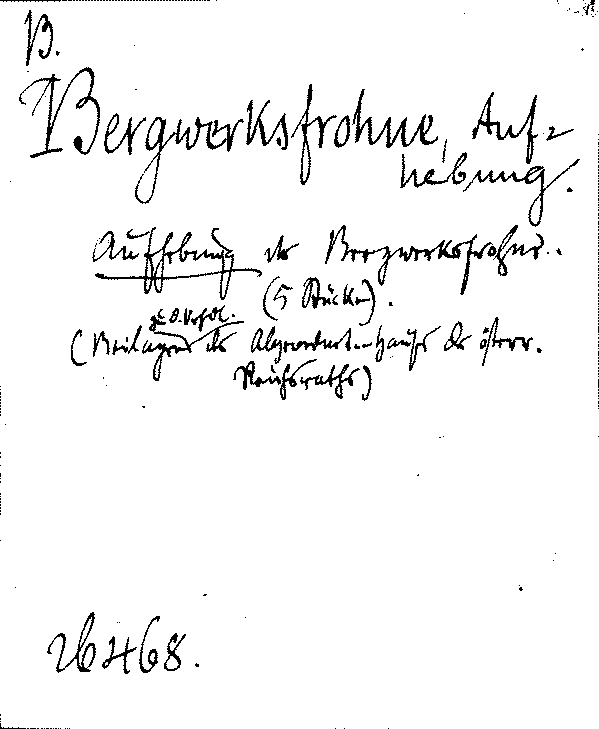 B.
Bergwerksfrohne, Auf=
hebung.
Aufhebung der Bergwerksfrohne..
(5 Stücke).
zu d. Verhdl.
(Beilagen des Abgeordneten-Hauses des österr.
Reichsraths)
26468.